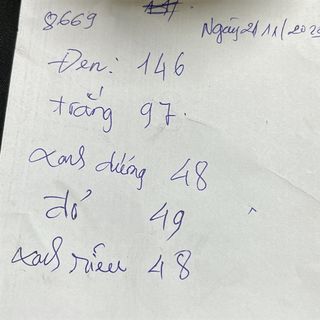 8669
Ngày 21/11/202
Đen: 146
trắng 97.
xanh dương 48
đỏ 49
xanh rêu 48